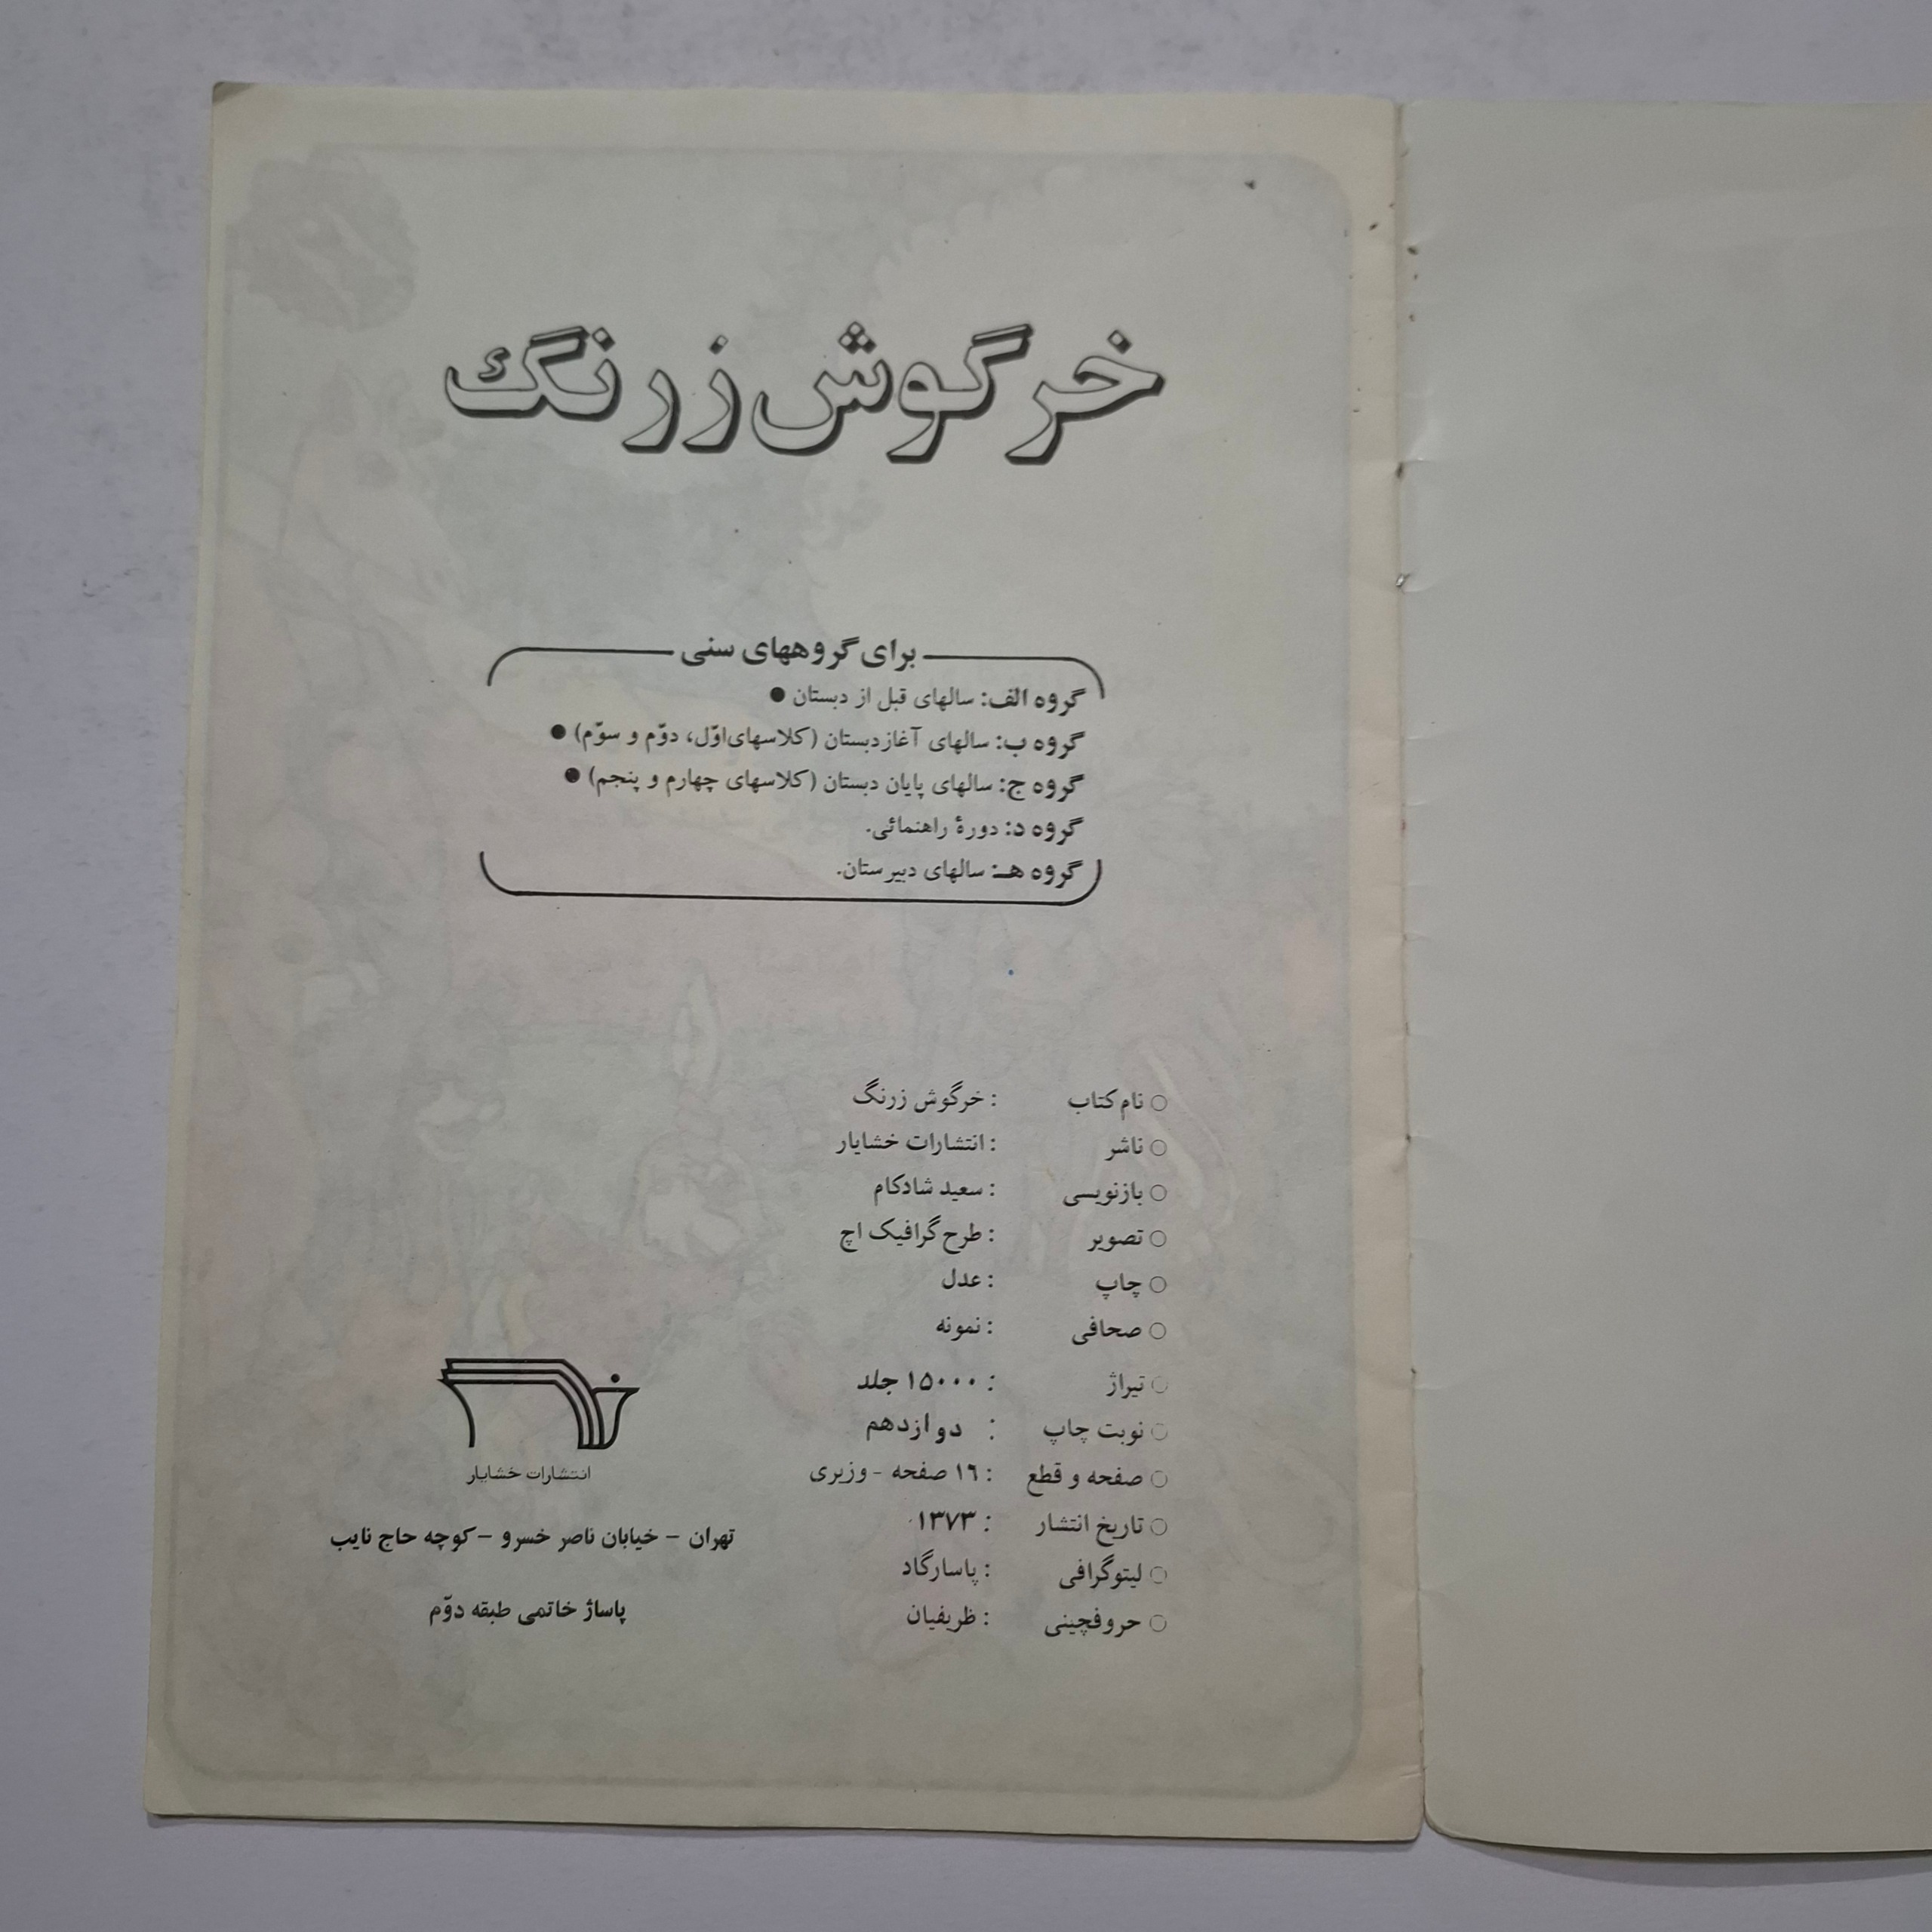 خرگوش زرنگ
برای گروههای سنی
گروه الف: سالهای قبل از دبستان ●
گروه ب: سالهای آغاز دبستان (کلاسهای اوّل، دوّم و سوّم) ●
گروه ج: سالهای پایان دبستان (کلاسهای چهارم و پنجم) ●
گروه د: دورهٔ راهنمائی.
گروه هـ: سالهای دبیرستان.
○ نام کتاب : خرگوش زرنگ
○ ناشر : انتشارات خشایار
○ بازنویسی : سعید شادکام
○ تصویر : طرح گرافیک اچ
○ چاپ : عدل
○ صحافی : نمونه
○ تیراژ : ۱۵۰۰۰ جلد
○ نوبت چاپ : دوازدهم
○ صفحه و قطع : ۱۶ صفحه - وزیری
○ تاریخ انتشار : ۱۳۷۳
○ لیتوگرافی : پاسارگاد
○ حروفچینی : ظریفیان
انتشارات خشایار
تهران – خیابان ناصر خسرو – کوچه حاج نایب
پاساژ خاتمی طبقه دوّم